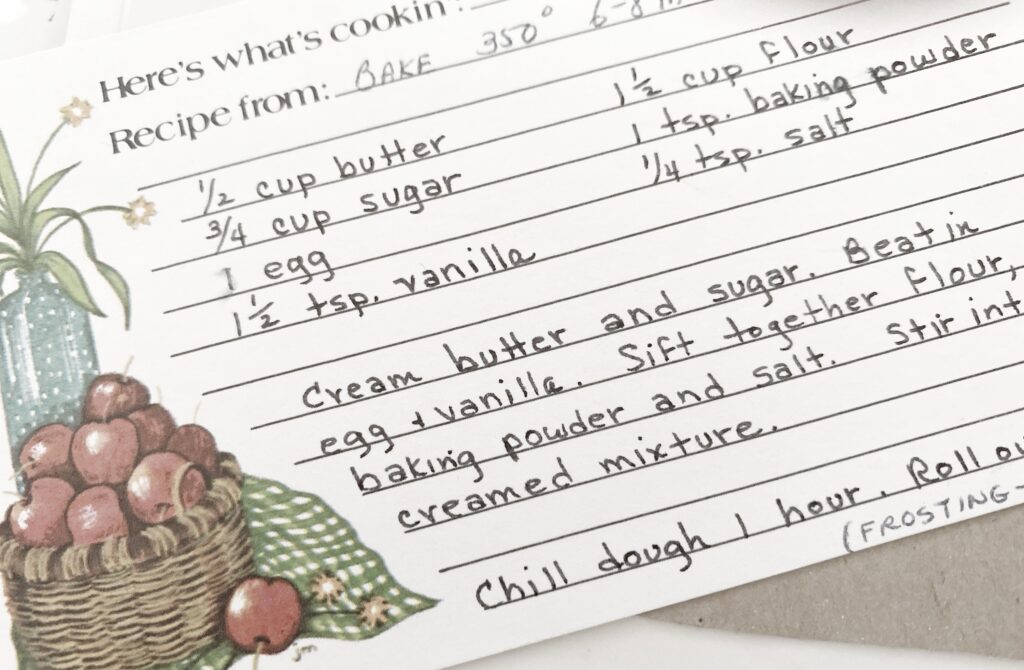 Here's what's cookin':
Recipe from: BAKE 350° 6-8
½ cup butter 1½ cup flour
¾ cup sugar 1 tsp. baking powder
1 egg ¼ tsp. salt
1½ tsp. vanilla
Cream butter and sugar. Beat in
egg + vanilla. Sift together flour,
baking powder and salt. Stir int
creamed mixture.
Chill dough 1 hour. Roll ou
(FROSTING-
jm